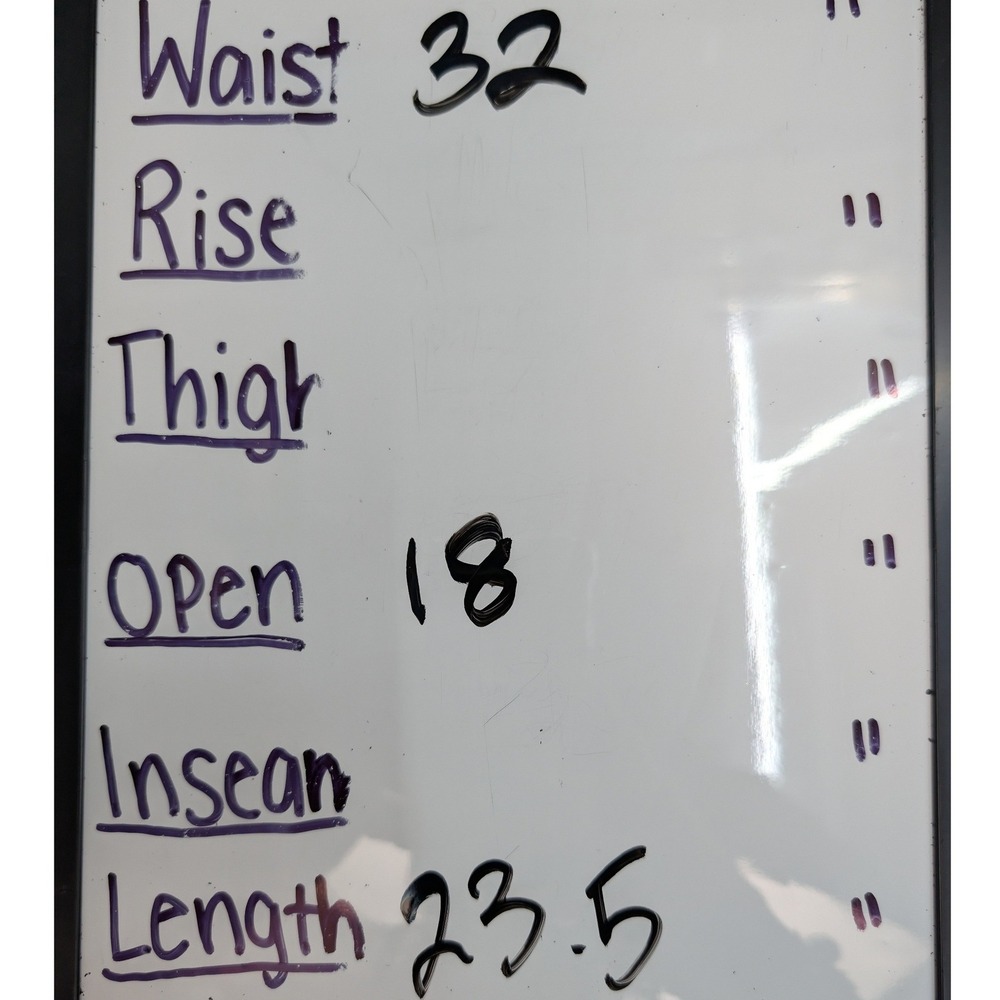 Waist 32 "
Rise "
Thigh "
Open 18 "
Insean "
Length 23.5 "